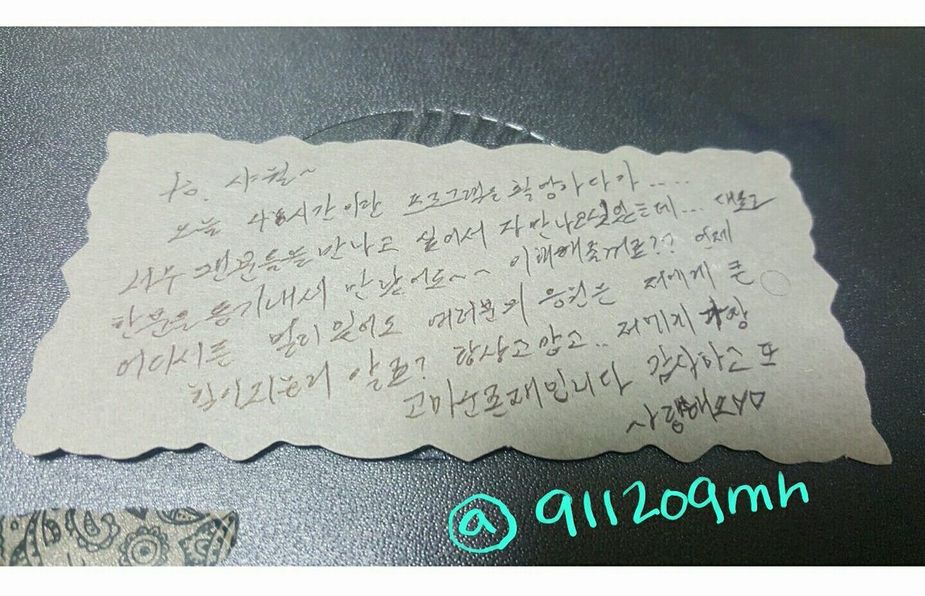 to. 샤월~
오늘 4시간이란 프로그램을 촬영하다가.....
너무 팬분들을 만나고 싶어서 ... 대표로
한분을 몰래 만났어요~~ 이해해줄꺼죠?? 언제
어디서든 멀리 있어도 여러분의 응원은 저에게 큰
힘이되는거 알죠? 항상 고맙고.. 저에게 가장
고마운존재입니다 감사하고 또
사랑해요
@911209mh